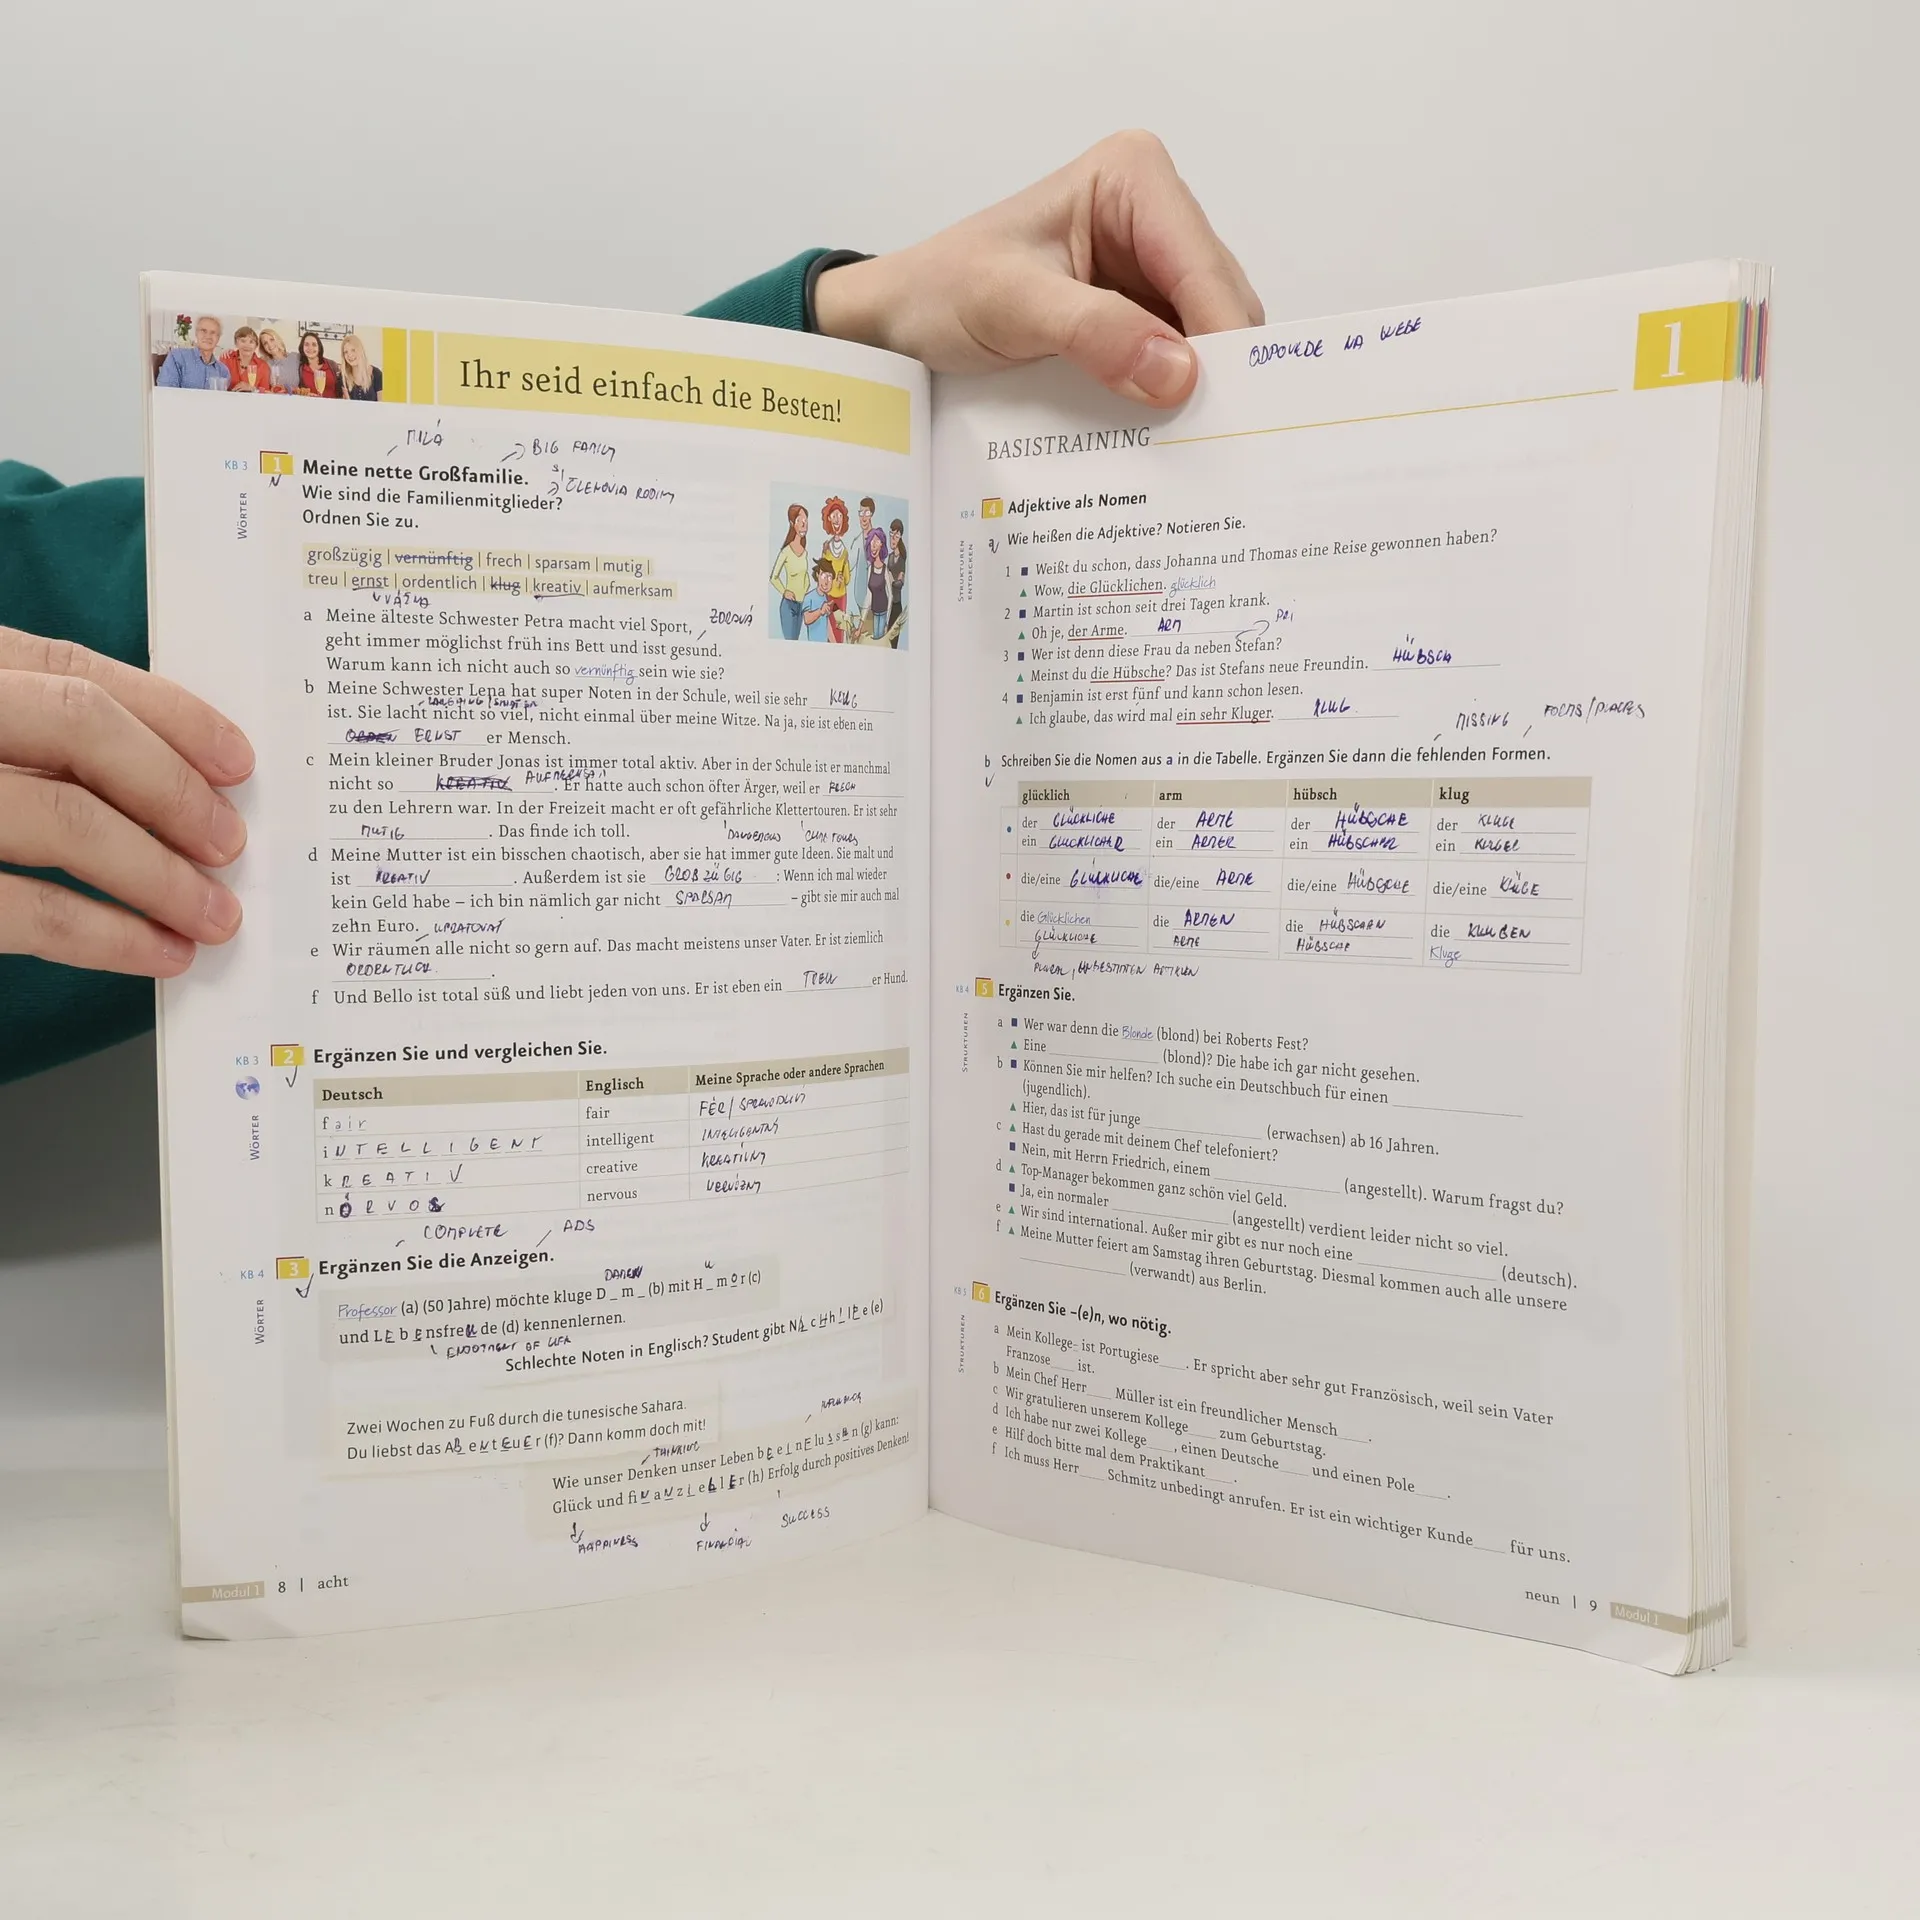 Ihr seid einfach die Besten!
MILÁ
BIG FAMILY
KB 3
1
Meine nette Großfamilie.
Wie sind die Familienmitglieder?
Ordnen Sie zu.
WÖRTER
großzügig | vernünftig | frech | sparsam | mutig |
treu | ernst | ordentlich | klug | kreativ | aufmerksam
VÁŽNA
ZDRAVÁ
a Meine älteste Schwester Petra macht viel Sport,
geht immer möglichst früh ins Bett und isst gesund.
Warum kann ich nicht auch so vernünftig sein wie sie?
b Meine Schwester Lena hat super Noten in der Schule, weil sie sehr KLUG
ist. Sie lacht nicht so viel, nicht einmal über meine Witze. Na ja, sie ist eben ein
ORDEN ERNST er Mensch.
c Mein kleiner Bruder Jonas ist immer total aktiv. Aber in der Schule ist er manchmal
nicht so KREATIV . Er hatte auch schon öfter Ärger, weil er FRECH
zu den Lehrern war. In der Freizeit macht er oft gefährliche Klettertouren. Er ist sehr
MUTIG . Das finde ich toll.
DANGEROUS
d Meine Mutter ist ein bisschen chaotisch, aber sie hat immer gute Ideen. Sie malt und
ist KREATIV . Außerdem ist sie GROßZÜGIG : Wenn ich mal wieder
kein Geld habe – ich bin nämlich gar nicht SPARSAM – gibt sie mir auch mal
zehn Euro. UPRATOVAT
e Wir räumen alle nicht so gern auf. Das macht meistens unser Vater. Er ist ziemlich
ORDENTLICH.
f Und Bello ist total süß und liebt jeden von uns. Er ist eben ein TREU er Hund.
KB 3
2
Ergänzen Sie und vergleichen Sie.
WÖRTER
Deutsch Englisch Meine Sprache oder andere Sprachen
fair fair FÉR/
INTELLIGENT intelligent INTELIGENTNÝ
KREATIV creative KREATÍVNY
nervous NERVÓZNY
COMPLETE ADS
KB 4
3
Ergänzen Sie die Anzeigen.
WÖRTER
DAMEN
Professor (a) (50 Jahre) möchte kluge D _ m _ (b) mit H u mor (c)
und LEbEnsfreUde (d) kennenlernen.
Schlechte Noten in Englisch? Student gibt NAcHhIlfe (e)
Zwei Wochen zu Fuß durch die tunesische Sahara.
Du liebst das ABeNtEuEr (f)? Dann komm doch mit!
THINKING
Wie unser Denken unser Leben bEeInFlussEn (g) kann:
Glück und fiNaNzIelLEr (h) Erfolg durch positives Denken!
HAPPINESS
FINANCIAL
SUCCESS
Modul 1 8 | acht
ODPOVEDE NA WEBE
1
BASISTRAINING
KB 4
4
Adjektive als Nomen
STRUKTUREN ENTDECKEN
a Wie heißen die Adjektive? Notieren Sie.
1 Weißt du schon, dass Johanna und Thomas eine Reise gewonnen haben?
Wow, die Glücklichen. glücklich
2 Martin ist schon seit drei Tagen krank.
Oh je, der Arme. ARM
PRI
3 Wer ist denn diese Frau da neben Stefan?
Meinst du die Hübsche? Das ist Stefans neue Freundin. HÜBSCH
4 Benjamin ist erst fünf und kann schon lesen.
Ich glaube, das wird mal ein sehr Kluger. KLUG
MISSING
b Schreiben Sie die Nomen aus a in die Tabelle. Ergänzen Sie dann die fehlenden Formen.
glücklich arm hübsch klug
der GLÜCKLICHE der ARME der HÜBSCHE der KLUGE
ein GLÜCKLICHER ein ARMER ein HÜBSCHER ein KLUGER
die/eine GLÜCKLICHE die/eine ARME die/eine HÜBSCHE die/eine KLUGE
die Glücklichen die ARMEN die HÜBSCHEN die KLUGEN
GLÜCKLICHE ARME HÜBSCHE Kluge
KB 4
5
Ergänzen Sie.
STRUKTUREN
a Wer war denn die Blonde (blond) bei Roberts Fest?
Eine (blond)? Die habe ich gar nicht gesehen.
b Können Sie mir helfen? Ich suche ein Deutschbuch für einen
(jugendlich).
Hier, das ist für junge (erwachsen) ab 16 Jahren.
c Hast du gerade mit deinem Chef telefoniert?
Nein, mit Herrn Friedrich, einem (angestellt). Warum fragst du?
d Top-Manager bekommen ganz schön viel Geld.
Ja, ein normaler (angestellt) verdient leider nicht so viel.
e Wir sind international. Außer mir gibt es nur noch eine (deutsch).
f Meine Mutter feiert am Samstag ihren Geburtstag. Diesmal kommen auch alle unsere
(verwandt) aus Berlin.
KB 5
6
Ergänzen Sie –(e)n, wo nötig.
STRUKTUREN
a Mein Kollege- ist Portugiese . Er spricht aber sehr gut Französisch, weil sein Vater
Franzose ist.
b Mein Chef Herr Müller ist ein freundlicher Mensch .
c Wir gratulieren unserem Kollege zum Geburtstag.
d Ich habe nur zwei Kollege , einen Deutsche und einen Pole .
e Hilf doch bitte mal dem Praktikant .
f Ich muss Herr Schmitz unbedingt anrufen. Er ist ein wichtiger Kunde für uns.
neun | 9 Modul 1